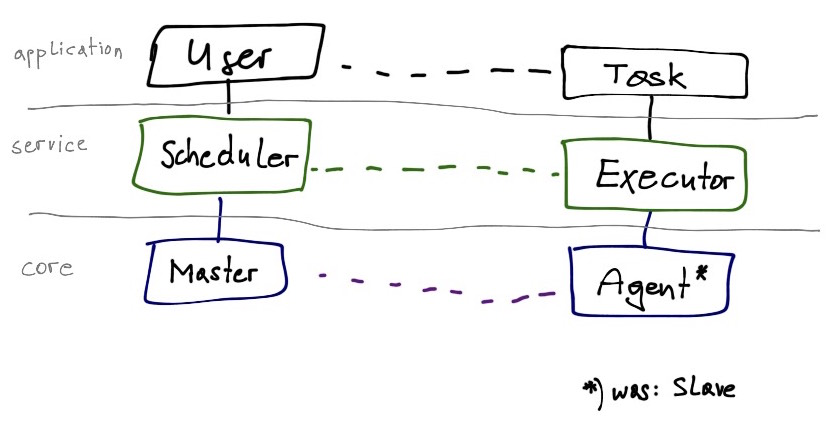 application
User
Task
service
Scheduler
Executor
core
Master
Agent*
*) was: Slave